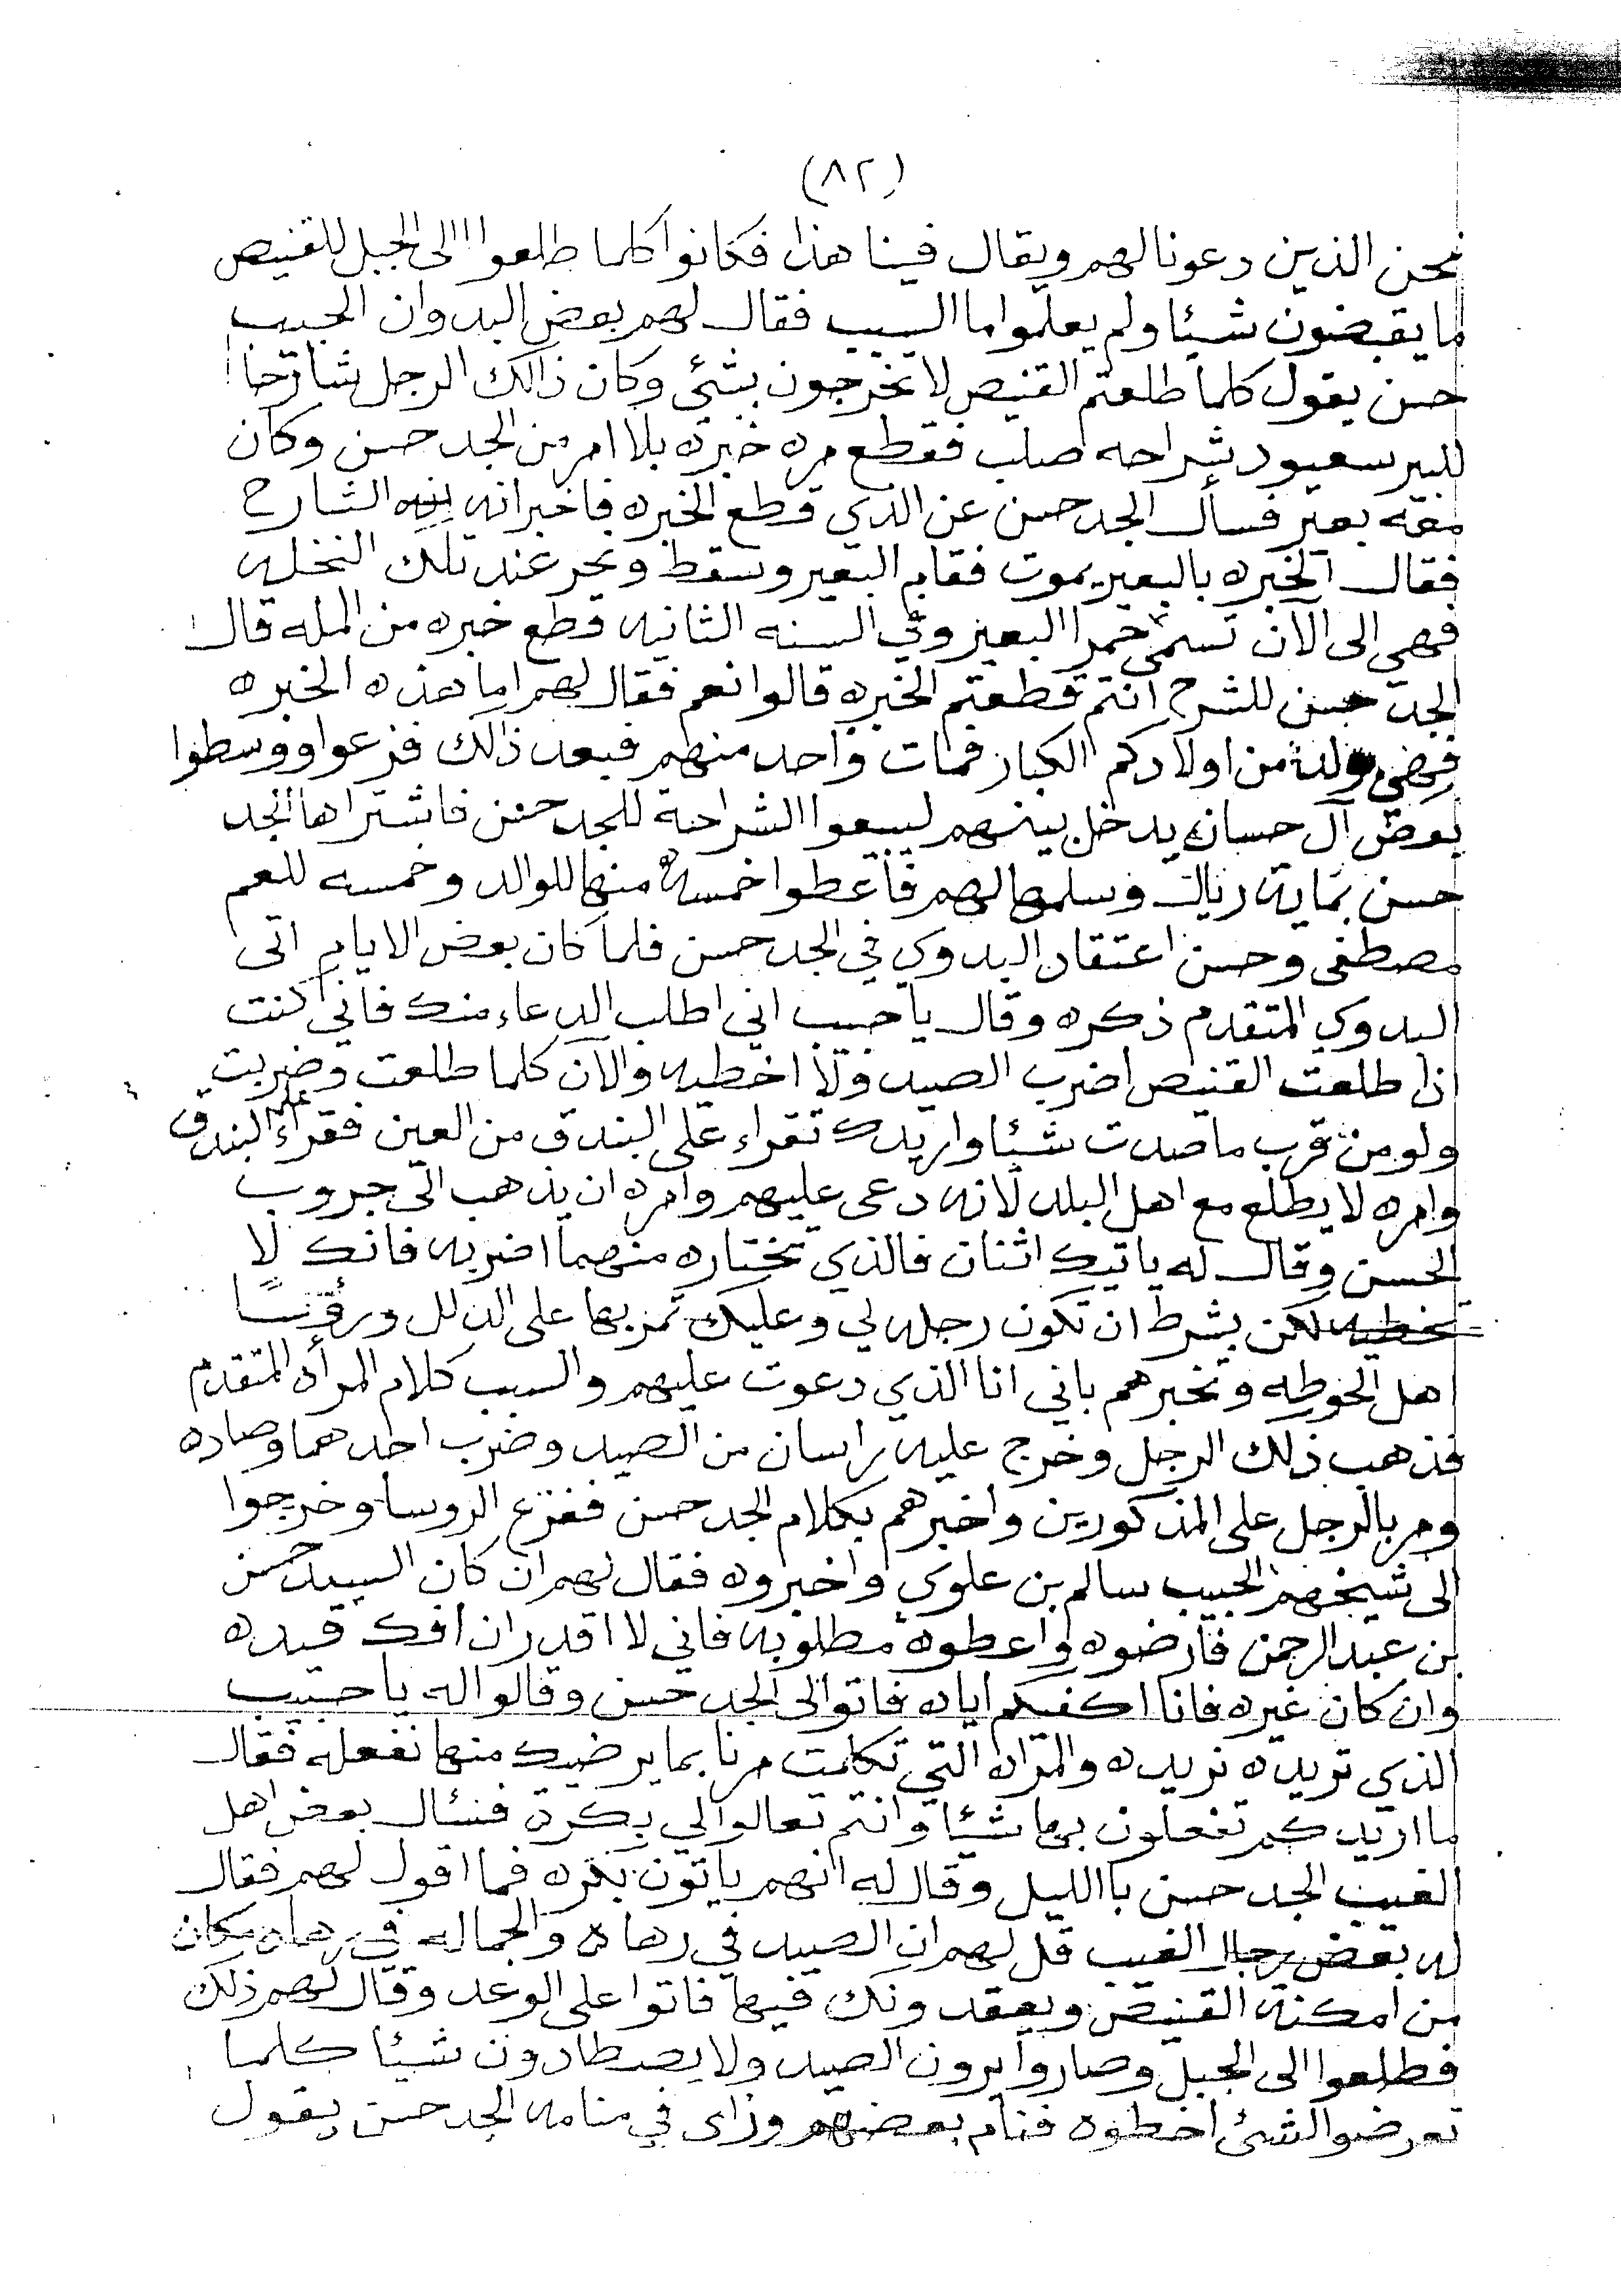 (٨٢)
نحن الذين دعونا لهم ويقال فينا هذا فكانوا كلما طلعوا الى الجبل للقنيص
ما يقبضون شيئا ولم يعلموا ما السبب فقال لهم بعض البدوان الحبيب
حسن يقول كلما طلعتم القنيص لا تخرجون بشئي وكان ذالك الرجل شارحا
للبير سعيود شراحه صلب فقطع مره خبره بلا امر من الجد حسن وكان
معه بعير فسأل الجد حسن عن الذي قطع الخبره فاخبرانه الشارح
فقال الخبره بالبعير يموت فقام البعير وسقط ونحر عند تلك النخله
فهي الى الآن تسمى حمرا البعير وفي السنه الثانيه قطع خبره من المله قال
الجد حسن للشرح انتم قطعتم الخبره قالوا نعم فقال لهم اما هذه الخبره
فهي ولد من اولادكم الكبار فمات واحد منهم فبعد ذالك فزعوا ووسطوا
بعض آل حسان يدخل بينهم ليبيعوا الشراحة للجد حسن فاشتراها الجد
حسن بمايه ريال وسلمها لهم فأعطوا خمسه منها للوالد وخمسه للعم
مصطفى وحسن اعتقاد البدوي في الجد حسن فلما كان بعض الايام اتى
البدوي المتقدم ذكره وقال يا حبيب اني اطلب الدعاء منك فاني كنت
اذا طلعت القنيص اضرب الصيد ولا اخطيه والآن كلما طلعت وضربت
ولو من قرب ما صدت شيئا واريدك تقراء على البندق من العين فقراء على البندق
وامره لا يطلع مع اهل البلد لانه دعى عليهم وامره ان يذهب الى جروب
الحسن وقال له ياتيك اثنان فالذي تختاره منهما اضربه فانك لا
تخطيه لكن بشرط ان تكون رجله لي وعليك تمر بها على الدلل ورؤسا
اهل الحوطه وتخبرهم باني انا الذي دعوت عليهم والسبب كلام المرأه المتقدم
فذهب ذلك الرجل وخرج عليه راسان من الصيد وضرب احدهما وصاده
ومر بالرجل على المذكورين واخبرهم بكلام الجد حسن ففزع الروسا وخرجوا
الى شيخهم الحبيب سالم بن علوي واخبروه فقال لهم ان كان السيد حسن
بن عبد الرحمن فارضوه واعطوه مطلوبه فاني لا اقدر ان افك قيده
وان كان غيره فانا اكفيكم اياه فاتوا الى الجد حسن وقالوا له يا حبيب
الذي تريده نريده والمراه التي تكلمت مرنا بما يرضيك منها نفعله فقال
ما اريدكم تفعلون بها شيئا وانتم تعالوا لي بكرة فسئال بعض اهل
الغيب الجد حسن با الليل وقال له انهم ياتون بكره فما اقول لهم فقال
له بعض رجال الغيب قل لهم ان الصيد في رهاه والجماله في رهاه مكان
من امكنة القنيص ويعقد ونك فيها فاتوا على الوعد وقال لهم ذلك
فطلعوا الى الجبل وصاروا يرون الصيد ولا يصطادون شيئا كلما
تعرضوا لشئ اخطوه فنام بعضهم وراى في منامه الجد حسن يقول